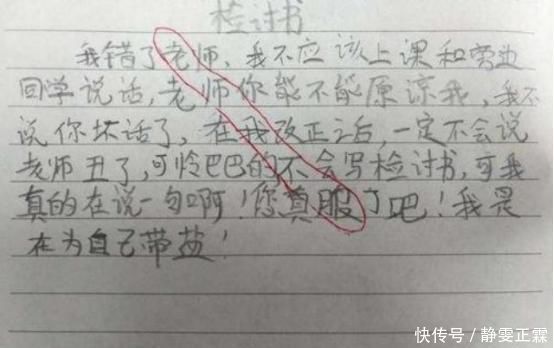 检讨书
我错了老师、我不应该上课和旁边
同学说话,老师你能不能原谅我,我不
说你坏话了,在我改正之后,一定不会说
老师丑了,可怜巴巴的不会写检讨书,可我
真的在说一句啊!您真服了吧!我是
在为自己带盐!
快传号/静雯正霖